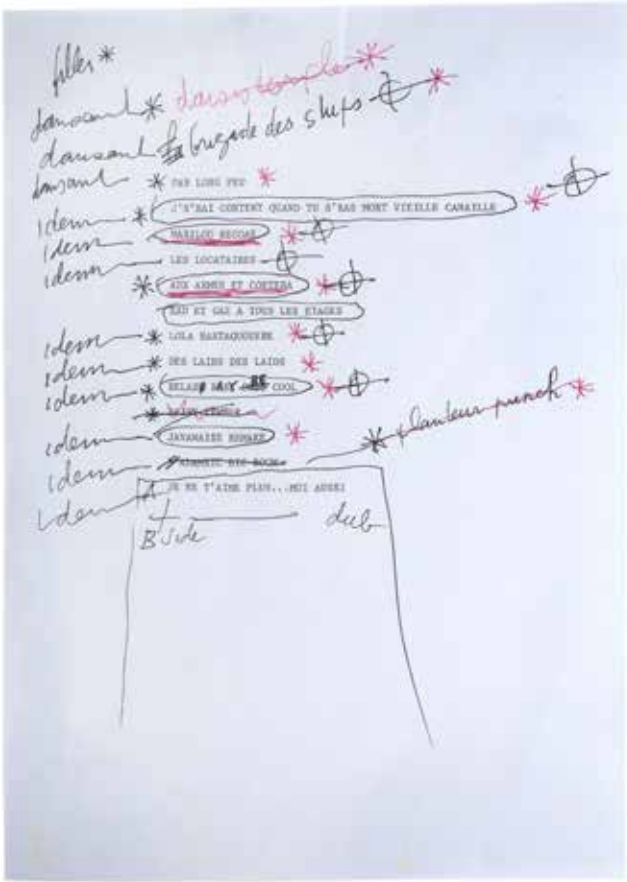 filles *
dansant *
dansant brigade des slips
dansant * PAS LONG FEU *
idem * J'S'RAI CONTENT QUAND TU S'RAS MORT VIEILLE CANAILLE *
idem MARILOU REGGAE *
idem LES LOCATAIRES
* AUX ARMES ET CAETERA *
EAU ET GAZ A TOUS LES ETAGES
idem * LOLA RASTAQUOUERE *
idem * DES LAIDS DES LAIDS *
idem * RELAX BABY BE COOL *
*
idem JAVANAISE REMAKE *
* planteur punch *
idem
idem A JE NE T'AIME PLUS...MOI AUSSI
B side dub